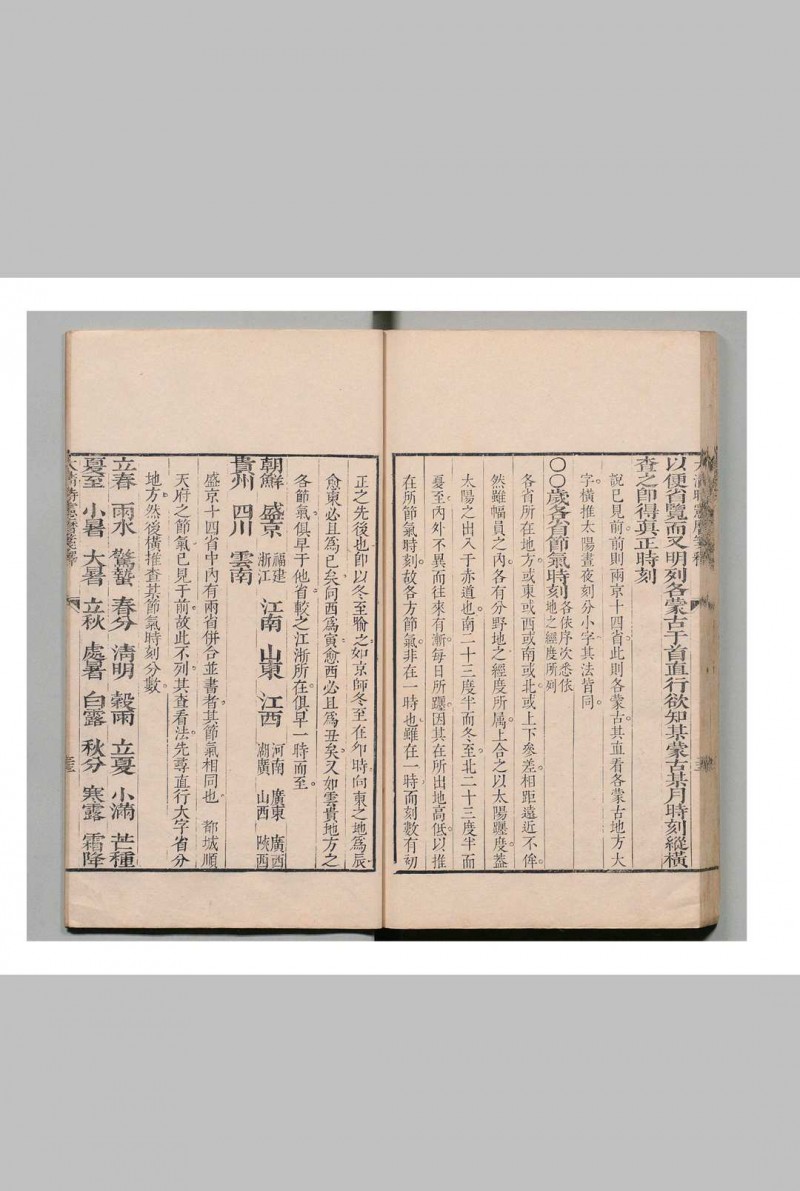 以便省覽而又明列各蒙古于首直行欲知某蒙古某月時刻縱橫
查之卽得真正時刻
說已見前前則兩京十四省此則各蒙古其直看各蒙古地方大
字橫推太陽晝夜刻分小字其法皆同
〇〇歲各省節氣時刻各依序次悉依
地之經度所列
各省所在地方或東或西或南或北或上下參差相距遠近不侔
然雖幅員之內各有分野地之經度所屬上合之以太陽躔度蓋
太陽之出入于赤道也南二十三度半而冬至北二十三度半而
夏至內外不異而往來有漸每日所躔因其在所出地高低以推
在所節氣時刻故各方節氣非在一時也雖在一時而刻數有初
正之先後也卽以冬至喻之如京師冬至在卯時向東之地爲辰
愈東必且爲巳矣向西爲寅愈西必且爲丑矣又如雲貴地方之
各節氣俱早于他省較之江浙所在俱早一時而至
朝鮮 盛京 福建 江南 山東 江西 河南 廣東 廣西
浙江 湖廣 山西 陝西
貴州 四川 雲南
盛京十四省中內有兩省併合並書者其節氣相同也 都城順
天府之節氣已見于前故此不列其查看法先尋直行大字省分
地方然後橫推查某節氣時刻分數
立春 雨水 驚蟄 春分 淸明 穀雨 立夏 小滿 芒種
夏至 小暑 大暑 立秋 處暑 白露 秋分 寒露 霜降